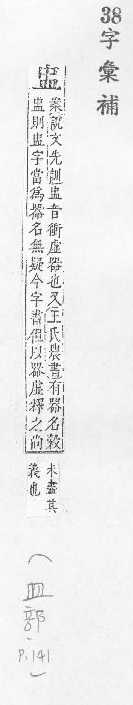 38字彙補
盅
案說文先訓盅音衝虛器也又王氏農書有器名穀
盅則盅字當為器名無疑今字書但以器虛釋之尙
未盡其
義也
(皿部, P.141)